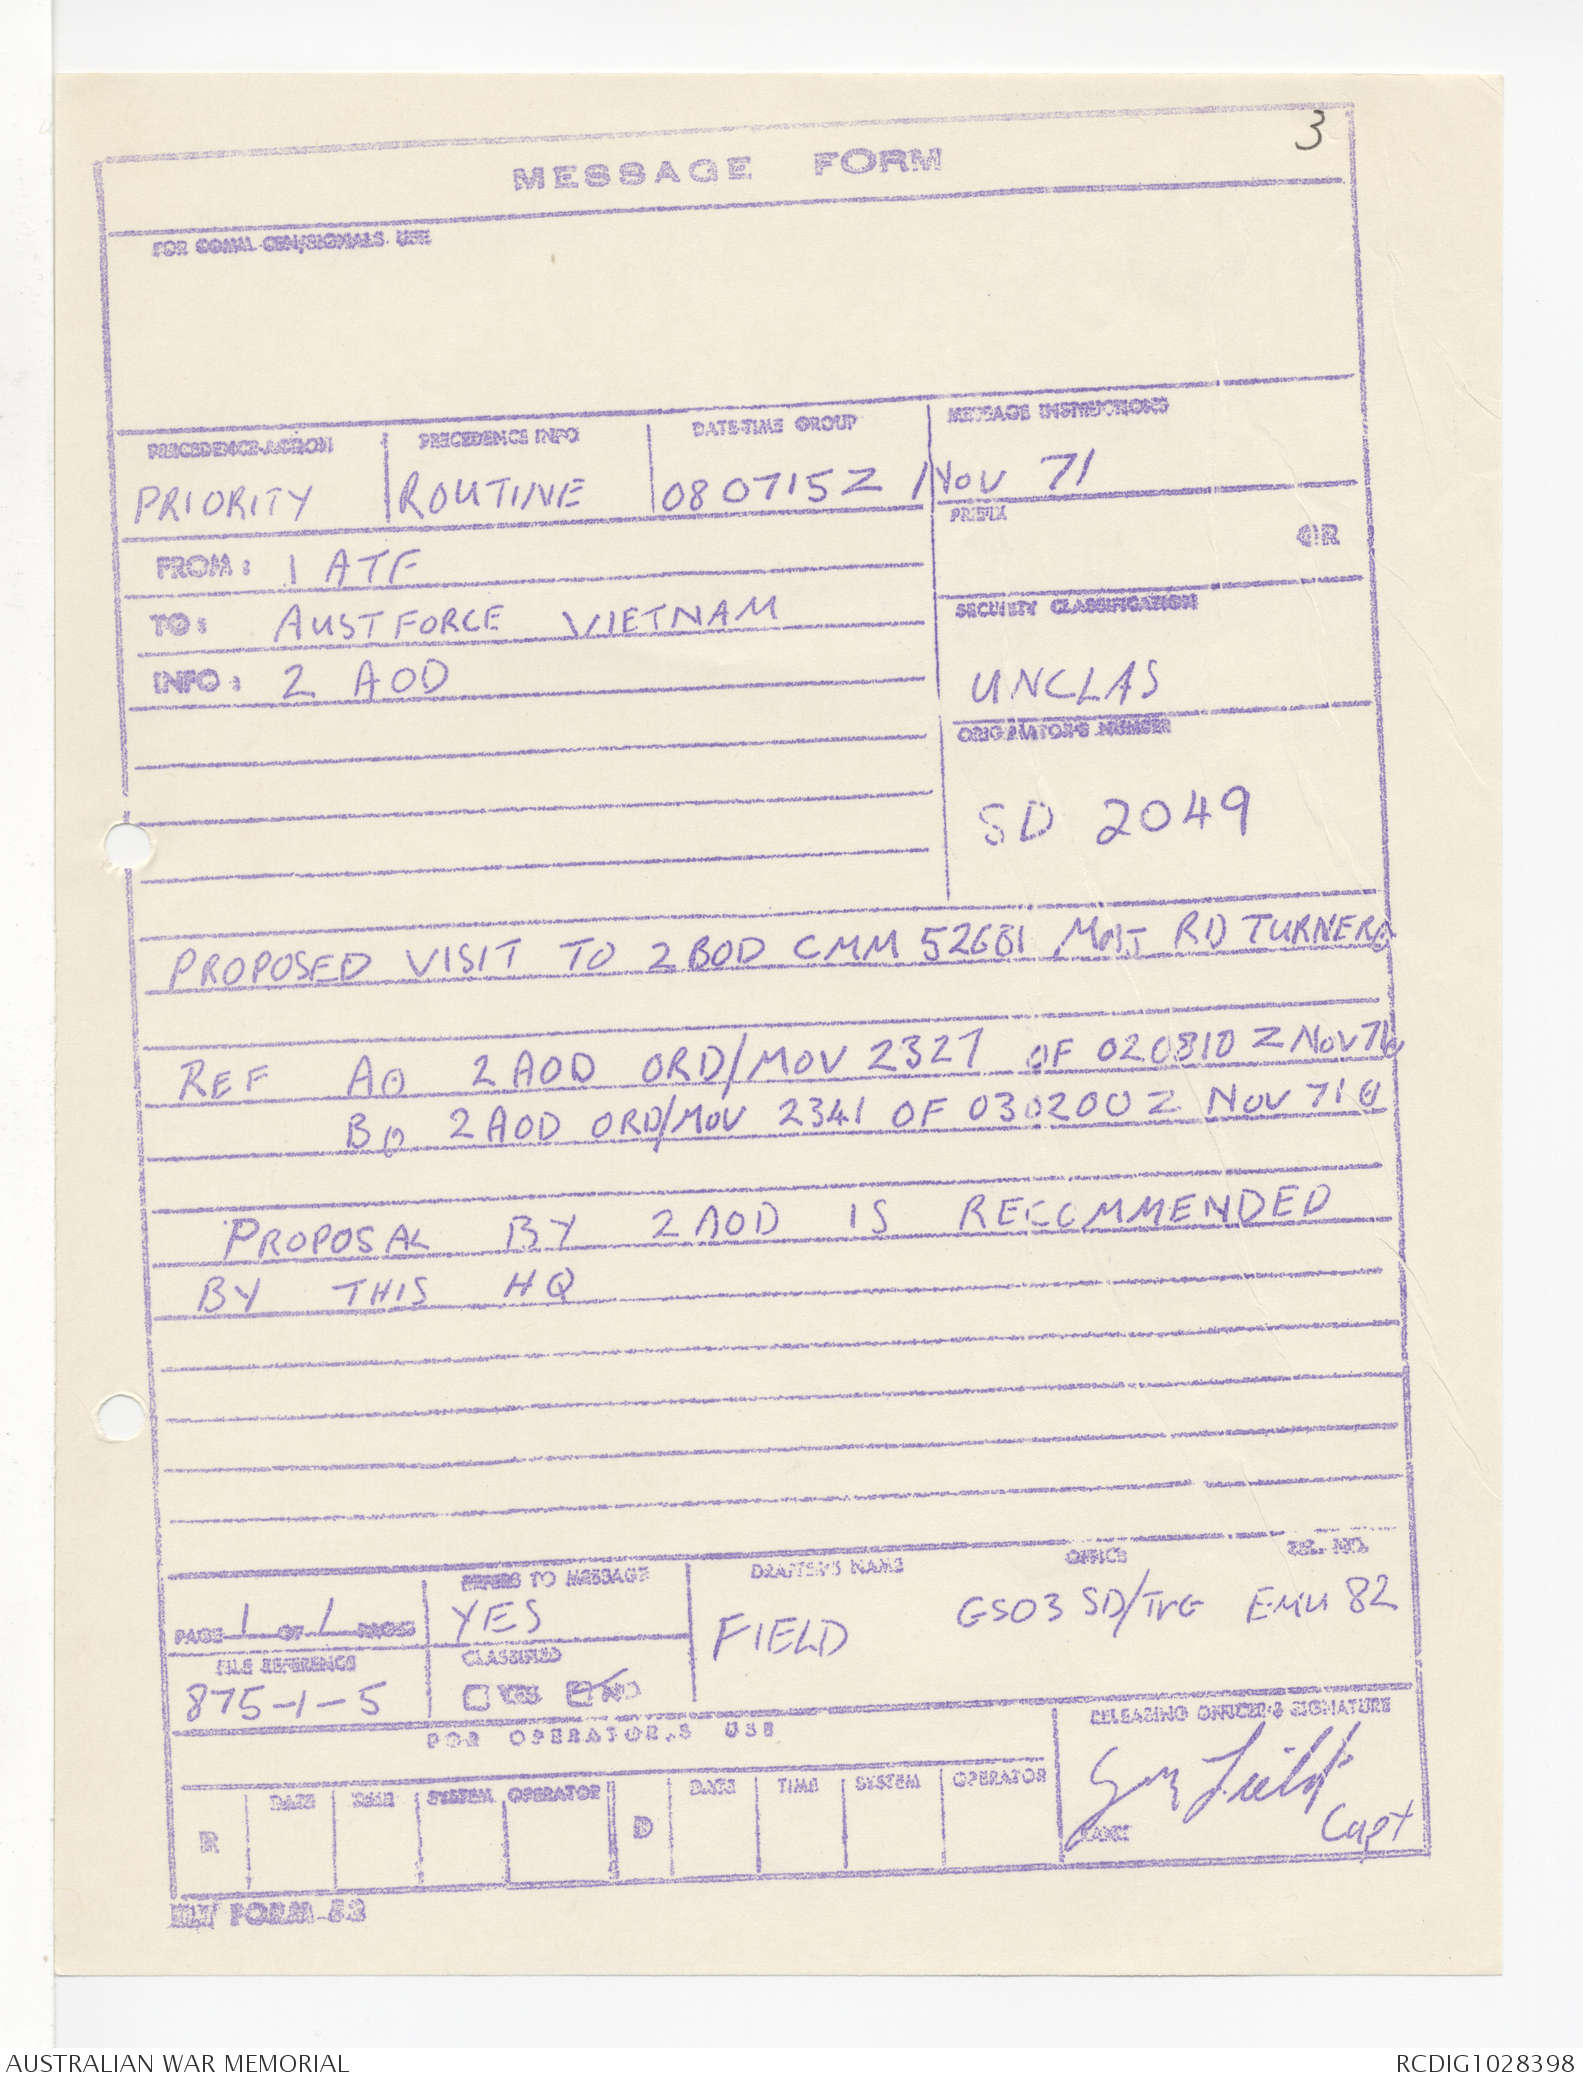 3
MESSAGE FORM
FOR COMM-CEN/SIGNALS USE
PRECEDENCE-ACTION
PRECEDENCE INFO
DATE-TIME GROUP
MESSAGE INSTRUCTIONS
PRIORITY
ROUTINE
080715Z Nov 71
PREFIX
GR
FROM: 1 ATF
TO: AUSTFORCE VIETNAM
SECURITY CLASSIFICATION
INFO: 2 AOD
UNCLAS
ORIGINATOR'S NUMBER
SD 2049
PROPOSED VISIT TO 2 BOD CMM 52681 MAJ RD TURNER
REF A 2 AOD ORD/MOV 2327 OF 020810Z NOV 71
B 2 AOD ORD/MOV 2341 OF 030200Z NOV 71
PROPOSAL BY 2 AOD IS RECOMMENDED
BY THIS HQ
PAGE 1 OF 1 PAGES
REFERS TO MESSAGE
YES
DRAFTER'S NAME
FIELD
OFFICE
GSO3 SD/TRG
TEL. NO.
EMU 82
FILE REFERENCE
875-1-5
CLASSIFIED
YES NO
FOR OPERATOR'S USE
RELEASING OFFICER'S SIGNATURE
R DATE TIME SYSTEM OPERATOR D DATE TIME SYSTEM OPERATOR
Field
RANK Capt
FORM
AUSTRALIAN WAR MEMORIAL
RCDIG1028398